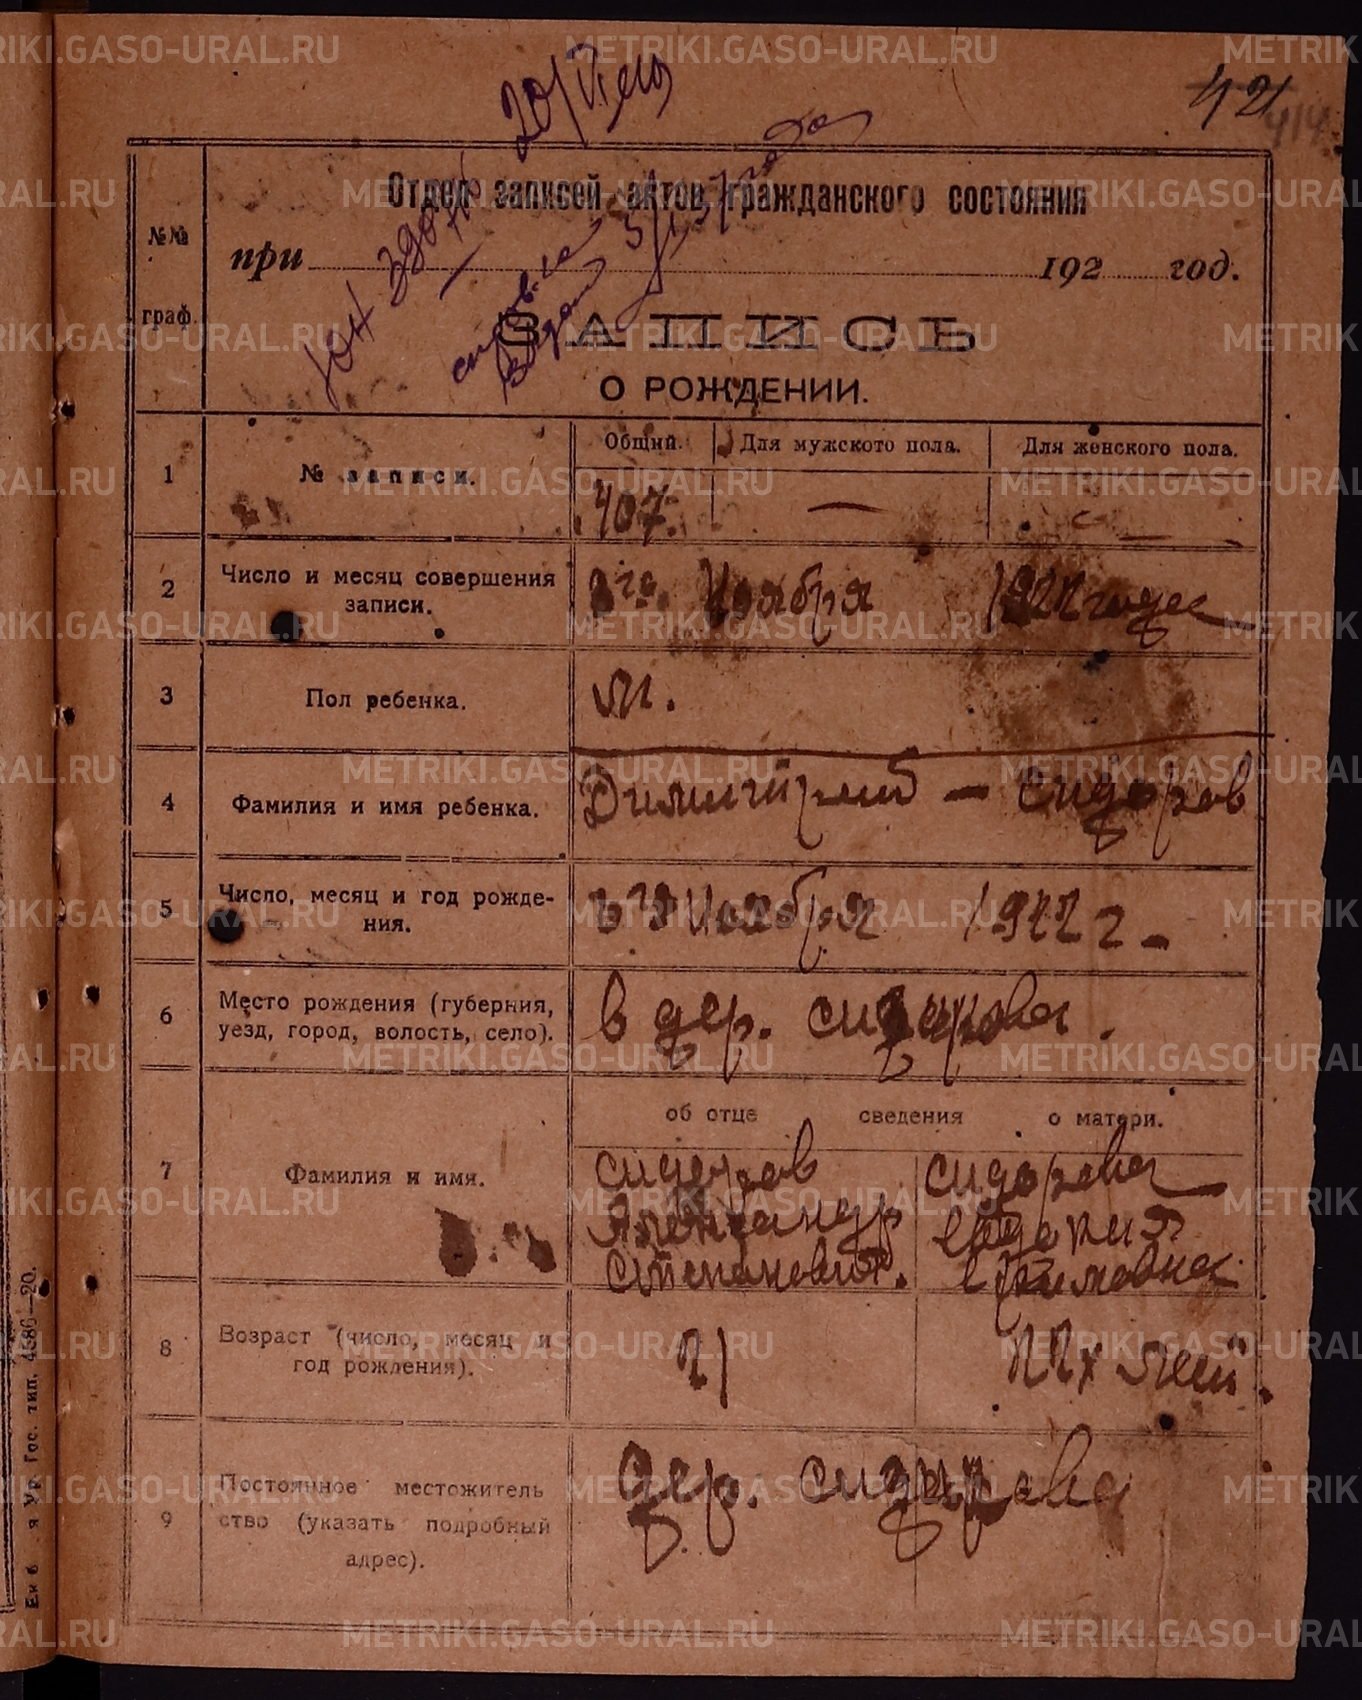 42
414
20/VI
Отдел записей актов гражданского состояния
№№
граф.
при 192 год.
ЗАПИСЬ
О РОЖДЕНИИ.
1
№ записи.
Общий. Для мужского пола. Для женского пола.
407. — —
2
Число и месяц совершения
записи.
Ноября 1922 года
3
Пол ребенка.
м.
4
Фамилия и имя ребенка.
Димитрий — Сидоров
5
Число, месяц и год рожде-
ния.
Ноября 1922 г.
6
Место рождения (губерния,
уезд, город, волость, село).
в дер. Сидорова.
об отце сведения о матери.
7
Фамилия и имя.
Сидоров
Александр
Степанович.
Сидорова
Евдокия
Ефимовна
8
Возраст (число, месяц и
год рождения).
21
22х лет.
9
Постоянное местожитель
ство (указать подробный
адрес).
дер. Сидорова
Гос. тип. 4386—20.
METRIKI.GASO-URAL.RU